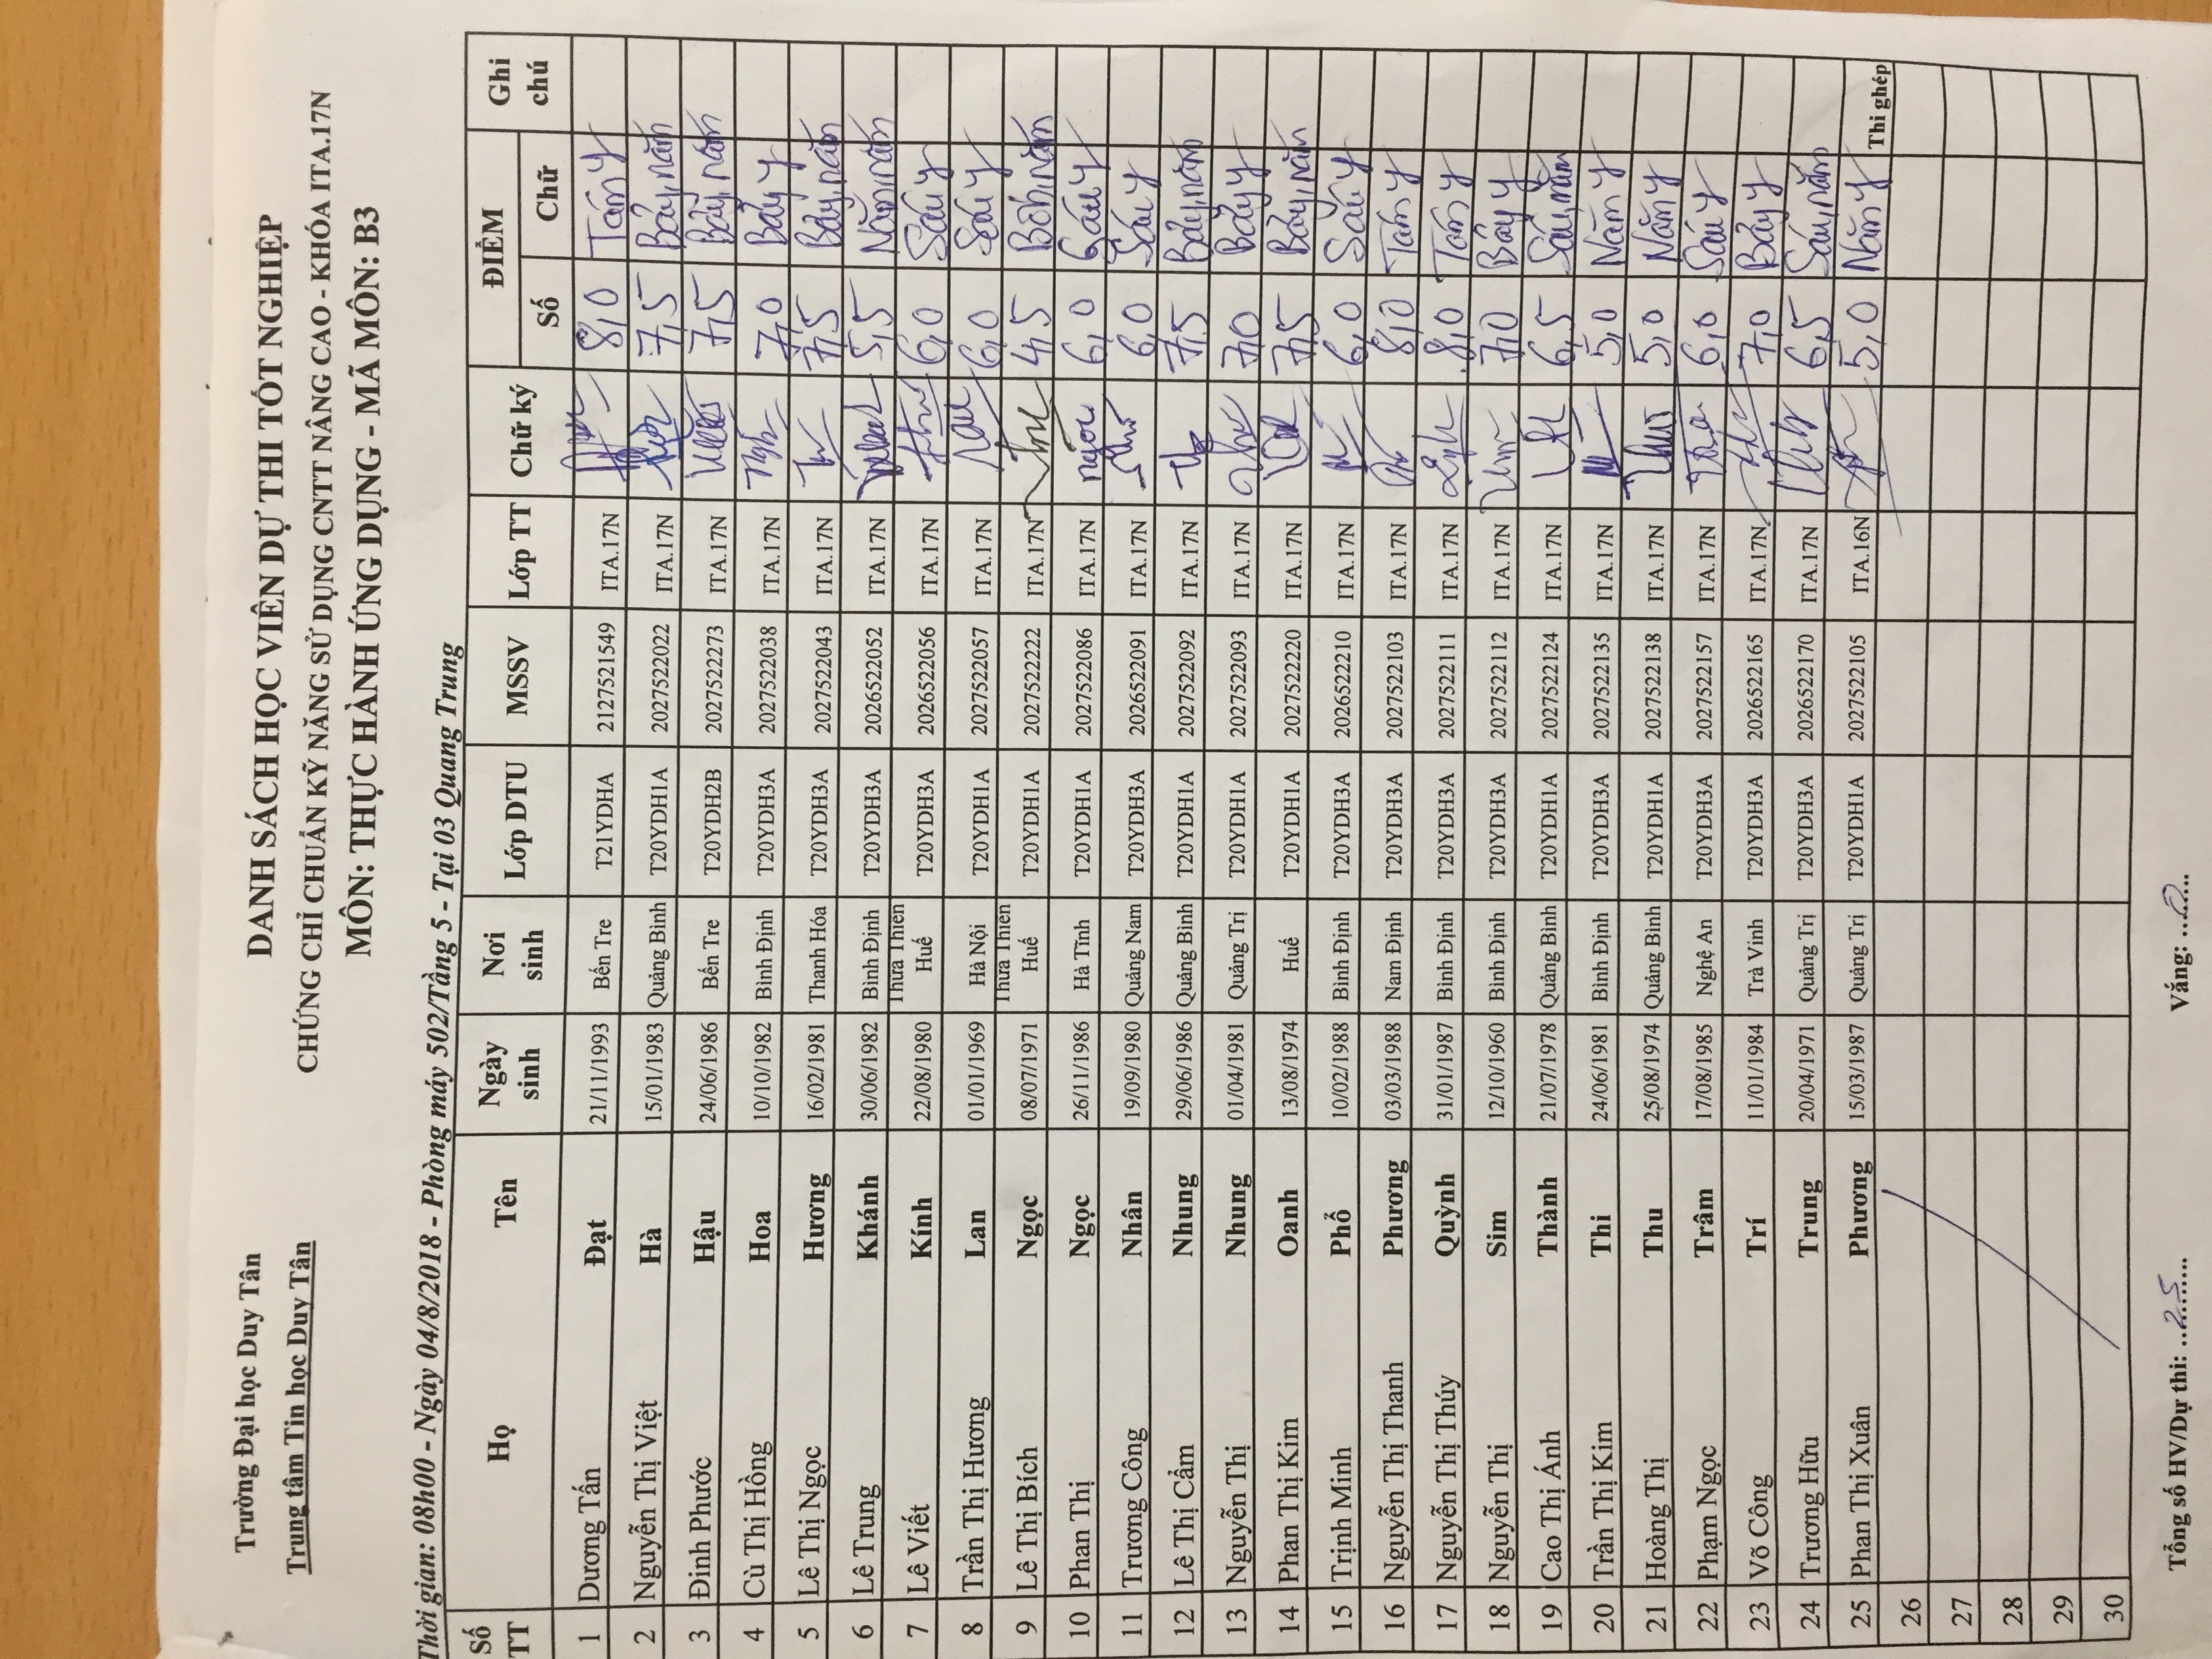 Trường Đại học Duy Tân
Trung tâm Tin học Duy Tân
DANH SÁCH HỌC VIÊN DỰ THI TỐT NGHIỆP
CHỨNG CHỈ CHUẨN KỸ NĂNG SỬ DỤNG CNTT NÂNG CAO - KHÓA ITA.17N
MÔN: THỰC HÀNH ỨNG DỤNG - MÃ MÔN: B3
Thời gian: 08h00 - Ngày 04/8/2018 - Phòng máy 502/Tầng 5 - Tại 03 Quang Trung
Số TT Họ Tên Ngày sinh Nơi sinh Lớp DTU MSSV Lớp TT Chữ ký ĐIỂM Số Chữ Ghi chú
1 Dương Tấn Đạt 21/11/1993 Bến Tre T21YDHA 2127521549 ITA.17N 8,0 Tám y
2 Nguyễn Thị Việt Hà 15/01/1983 Quảng Bình T20YDH1A 2027522022 ITA.17N 7,5 Bảy, năm
3 Đinh Phước Hậu 24/06/1986 Bến Tre T20YDH2B 2027522273 ITA.17N 7,5 Bảy, năm
4 Cù Thị Hồng Hoa 10/10/1982 Bình Định T20YDH3A 2027522038 ITA.17N 7,0 Bảy y
5 Lê Thị Ngọc Hương 16/02/1981 Thanh Hóa T20YDH3A 2027522043 ITA.17N 7,5 Bảy, năm
6 Lê Trung Khánh 30/06/1982 Bình Định T20YDH3A 2026522052 ITA.17N 5,5 Năm, năm
7 Lê Viết Kính 22/08/1980 Thừa Thiên Huế T20YDH3A 2026522056 ITA.17N 6,0 Sáu y
8 Trần Thị Hương Lan 01/01/1969 Hà Nội T20YDH1A 2027522057 ITA.17N 6,0 Sáu y
9 Lê Thị Bích Ngọc 08/07/1971 Thừa Thiên Huế T20YDH1A 2027522222 ITA.17N 4,5 Bốn, năm
10 Phan Thị Ngọc 26/11/1986 Hà Tĩnh T20YDH1A 2027522086 ITA.17N 6,0 Sáu y
11 Trương Công Nhân 19/09/1980 Quảng Nam T20YDH3A 2026522091 ITA.17N 6,0 Sáu y
12 Lê Thị Cẩm Nhung 29/06/1986 Quảng Bình T20YDH1A 2027522092 ITA.17N 7,5 Bảy, năm
13 Nguyễn Thị Nhung 01/04/1981 Quảng Trị T20YDH1A 2027522093 ITA.17N 7,0 Bảy y
14 Phan Thị Kim Oanh 13/08/1974 Huế T20YDH1A 2027522220 ITA.17N 7,5 Bảy, năm
15 Trịnh Minh Phố 10/02/1988 Bình Định T20YDH3A 2026522210 ITA.17N 6,0 Sáu y
16 Nguyễn Thị Thanh Phương 03/03/1988 Nam Định T20YDH3A 2027522103 ITA.17N 8,0 Tám y
17 Nguyễn Thị Thúy Quỳnh 31/01/1987 Bình Định T20YDH3A 2027522111 ITA.17N 8,0 Tám y
18 Nguyễn Thị Sim 12/10/1960 Bình Định T20YDH3A 2027522112 ITA.17N 7,0 Bảy y
19 Cao Thị Ánh Thành 21/07/1978 Quảng Bình T20YDH1A 2027522124 ITA.17N 6,5 Sáu, năm
20 Trần Thị Kim Thi 24/06/1981 Bình Định T20YDH3A 2027522135 ITA.17N 5,0 Năm y
21 Hoàng Thị Thu 25/08/1974 Quảng Bình T20YDH1A 2027522138 ITA.17N 5,0 Năm y
22 Phạm Ngọc Trâm 17/08/1985 Nghệ An T20YDH3A 2027522157 ITA.17N 6,0 Sáu y
23 Võ Công Trí 11/01/1984 Trà Vinh T20YDH3A 2026522165 ITA.17N 7,0 Bảy y
24 Trương Hữu Trung 20/04/1971 Quảng Trị T20YDH3A 2026522170 ITA.17N 6,5 Sáu, năm
25 Phan Thị Xuân Phương 15/03/1987 Quảng Trị T20YDH1A 2027522105 ITA.16N 5,0 Năm y Thi ghép
26
27
28
29
30
Tổng số HV/Dự thi: ..25...... Vắng: ..0....